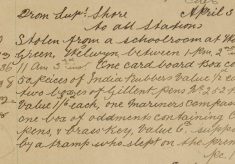 From Supt Shore April 3
To all Stations
Stolen from a schoolroom at We
Green, Welwyn between 1 Pm 2nd
11 Am 3rd inst One card board Box co
52 pieces of India Rubbers Value 1/- e
two boxes of Gillott Pens No 252
Value 1/- each, one Mariners Compas
one box of oddments containing C
pens, & draw Key, Value 6, supp
by a tramp who slept on the prem